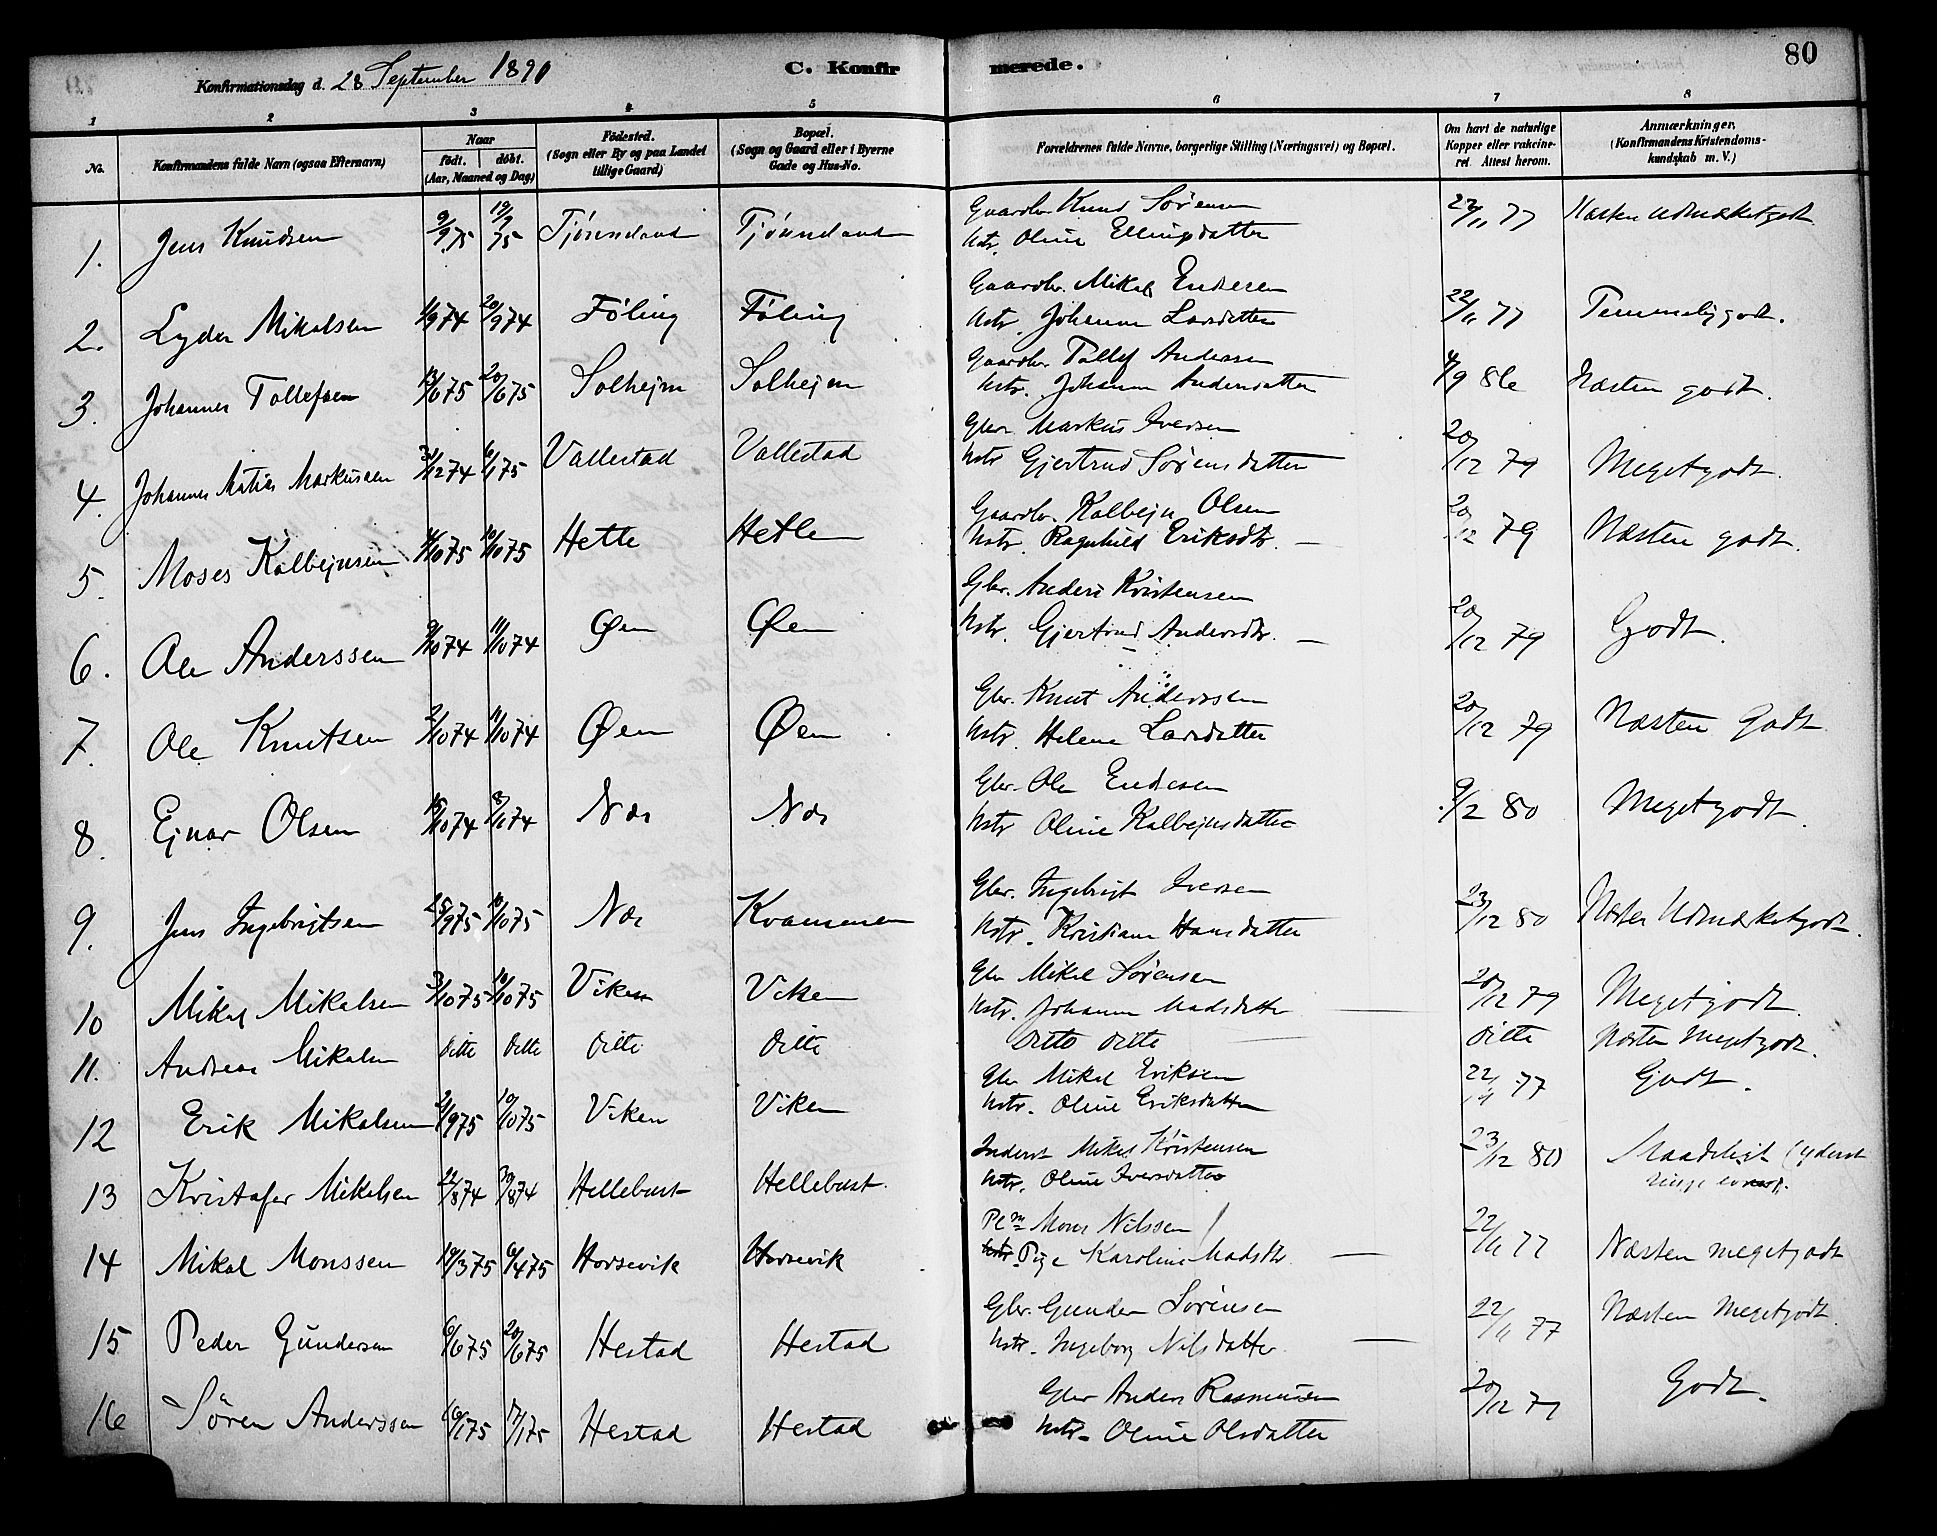 80
Konfirmationsdag d. 28 September 1890 C. Konfirmerede.
1 2 3 4 5 6 7 8
No. Konfirmandens fulde Navn (ogsaa Efternavn) Naar født. døbt. (Aar, Maaned og Dag) Fødested. (Sogn eller By og paa Landet tillige Gaard) Bopæl. (Sogn og Gaard eller i Byerne Gade og Hus-No. Forældrenes fulde Navne, borgerlige Stilling (Næringsvei) og Bopæl. Om havt de naturlige Kopper eller vaccineret. Attest herom. Anmærkninger. (Konfirmandens Kristendomskundskab m. V.)
1. Jens Knudsen 9/9 75 19/9 75 Tjønneland Tjønneland Gaardbr. Knud Sørensen 22/11 77 Næsten Udmærketgodt
Hstr. Oline Ellingsdatter
2. Lyder Mikalsen 1/9 74 20/9 74 Føling Føling Gaardbr. Mikal Endresen 22/11 77 Temmeliggodt.
Hstr. Johanne Larsdatter
3. Johannes Tollefsen 13/6 75 20/6 75 Solhejm Solhejm Gaardbr. Tollef Anderssen 4/9 86 Næsten godt.
Hstr. Johanne Andersdatter
4. Johannes Matias Markussen 31/12 74 6/1 75 Vallestad Vallestad Gbr. Markus Iversen 20/12 79 Megetgodt.
Hstr Gjertrud Sørensdatter
5. Moses Kolbejnsen 4/10 75 10/10 75 Hetle Hetle Gaardbr. Kolbejn Olsen 20/12 79 Næsten godt.
Hstr. Ragnhild Eriksdtr. —
6. Ole Anderssen 9/10 74 11/10 74 Øen Øen Gbr. Anders Kristensen 20/12 79 Godt.
Hstr. Gjertrud Andersdtr. —
7. Ole Knutsen 2/10 74 11/10 74 Øen Øen Gbr. Knut Anderssen 20/12 79 Næsten Godt
Hstr. Helene Larsdatter
8. Ejnar Olsen 15/10 74 8/11 74 Nes Nes Gbr. Ole Endresen 9/2 80 Megetgodt.
Hstr Oline Kolbejnsdatter
9. Jens Ingebrigtsen 25/9 75 10/10 75 Nes Kvammen Gbr. Ingebrigt Iversen 23/12 80 Næsten Udmærketgodt.
Hstr. Kristiane Hansdatter
10 Mikal Mikalsen 3/10 75 10/10 75 Viken Viken Gbr Mikal Sørensen 20/12 79 Megetgodt.
Hstr. Johanne Madsdatter —
11. Andreas Mikalsen Ditto Ditto Ditto Ditto Ditto ditto — Ditto Næsten Megetgodt.
12 Erik Mikalsen 21/9 75 10/10 75 Viken Viken Gbr Mikal Eriksen 22/11 77 Godt.
Hstr. Oline Eriksdatter
13 Kristofer Mikalsen 22/8 74 30/8 74 Hellebust Hellebust. Inderst Mikal Kristensen 23/12 80 Maadeligt (yderst
Hstr. Oline Iversdatter ringe
14 Mikal Monssen 19/3 75 6/4 75 Horsevik Horsevik Plm Mons Nilssen 22/11 77 Næsten megetgodt
Hstr. Pige Karoline Madsdtr. —
15 Peder Gundersen 6/6 75 20/6 75 Hestad Hestad Gbr. Gunder Sørensen 22/11 77 Næsten Megetgodt.
Hstr. Ingeborg Nilsdatter —
16 Søren Anderssen 6/1 75 17/1 75 Hestad Hestad Gbr Anders Rasmussen 20/12 77 Godt.
Hstr. Oline Olsdatter